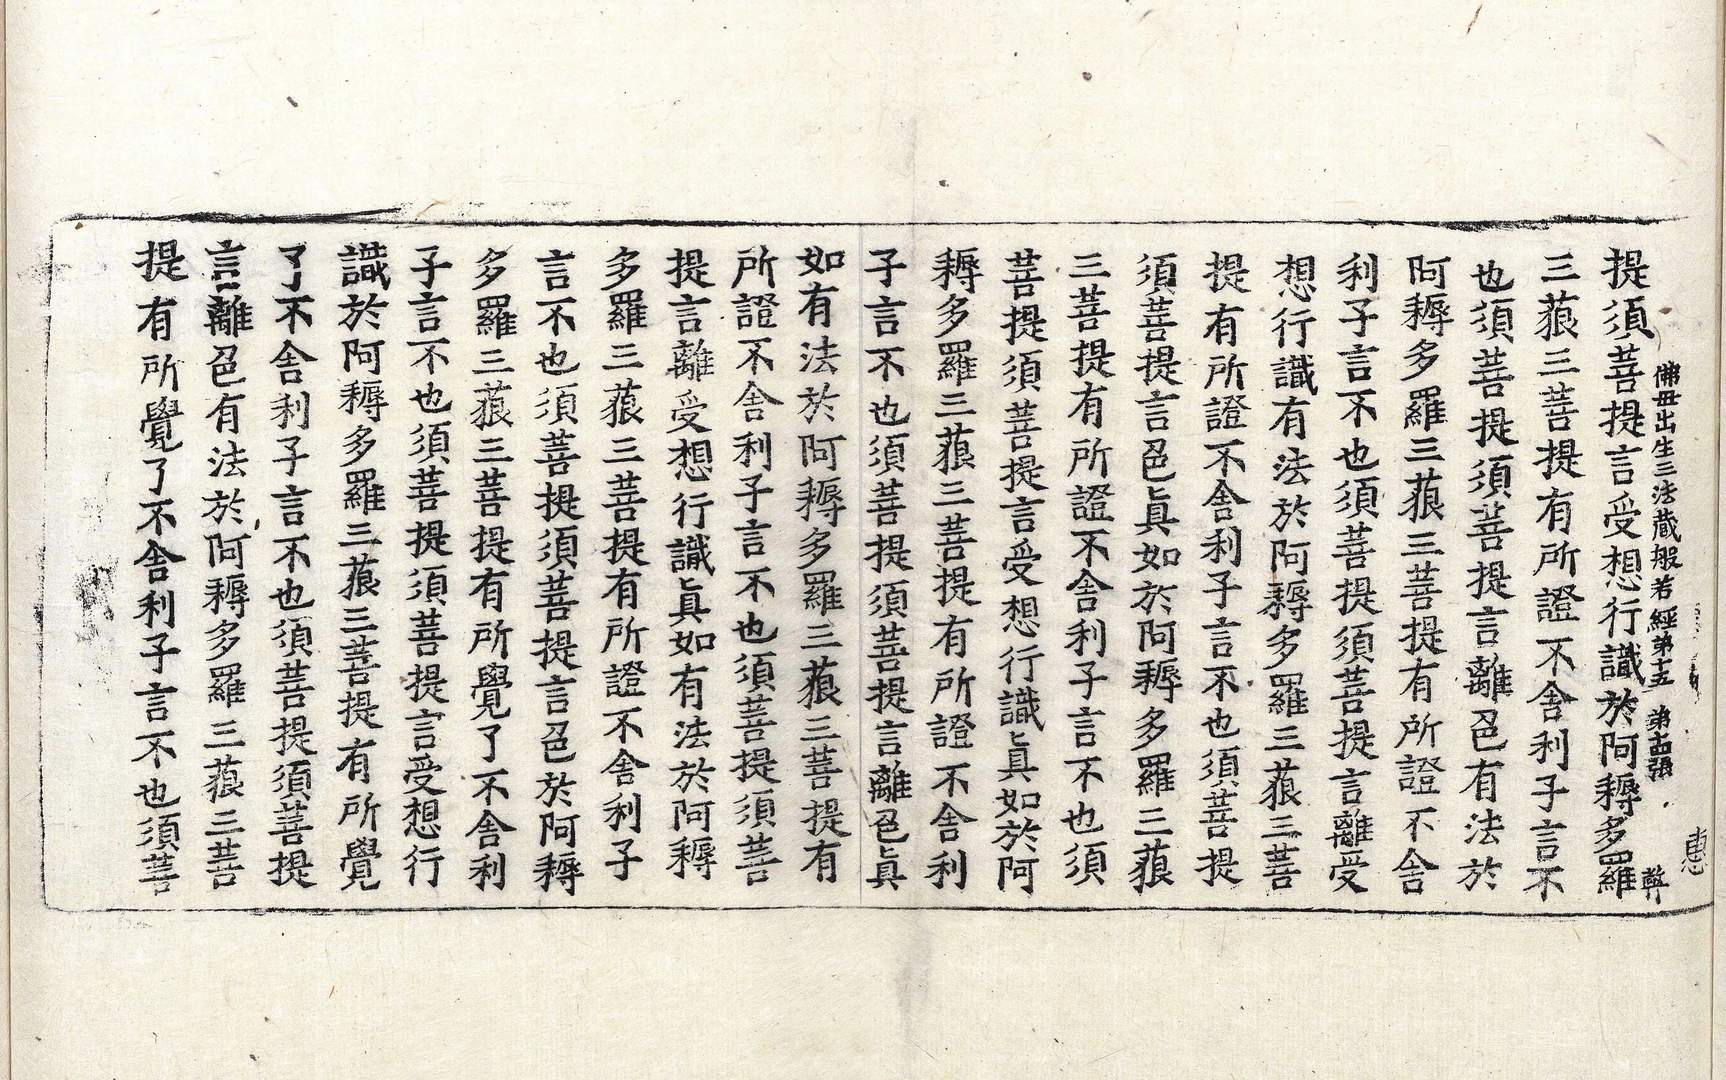 惠
佛母出生三法藏般若經第十五 第十四張 弊
提須菩提言受想行識於阿耨多羅
三藐三菩提有所證不舍利子言不
也須菩提須菩提言離色有法於
阿耨多羅三藐三菩提有所證不舍
利子言不也須菩提須菩提言離受
想行識有法於阿耨多羅三藐三菩
提有所證不舍利子言不也須菩提
須菩提言色眞如於阿耨多羅三藐
三菩提有所證不舍利子言不也須
菩提須菩提言受想行識眞如於阿
耨多羅三藐三菩提有所證不舍利
子言不也須菩提須菩提言離色眞
如有法於阿耨多羅三藐三菩提有
所證不舍利子言不也須菩提須菩
提言離受想行識眞如有法於阿耨
多羅三藐三菩提有所證不舍利子
言不也須菩提須菩提言色於阿耨
多羅三藐三菩提有所覺了不舍利
子言不也須菩提須菩提言受想行
識於阿耨多羅三藐三菩提有所覺
了不舍利子言不也須菩提須菩提
言離色有法於阿耨多羅三藐三菩
提有所覺了不舍利子言不也須菩